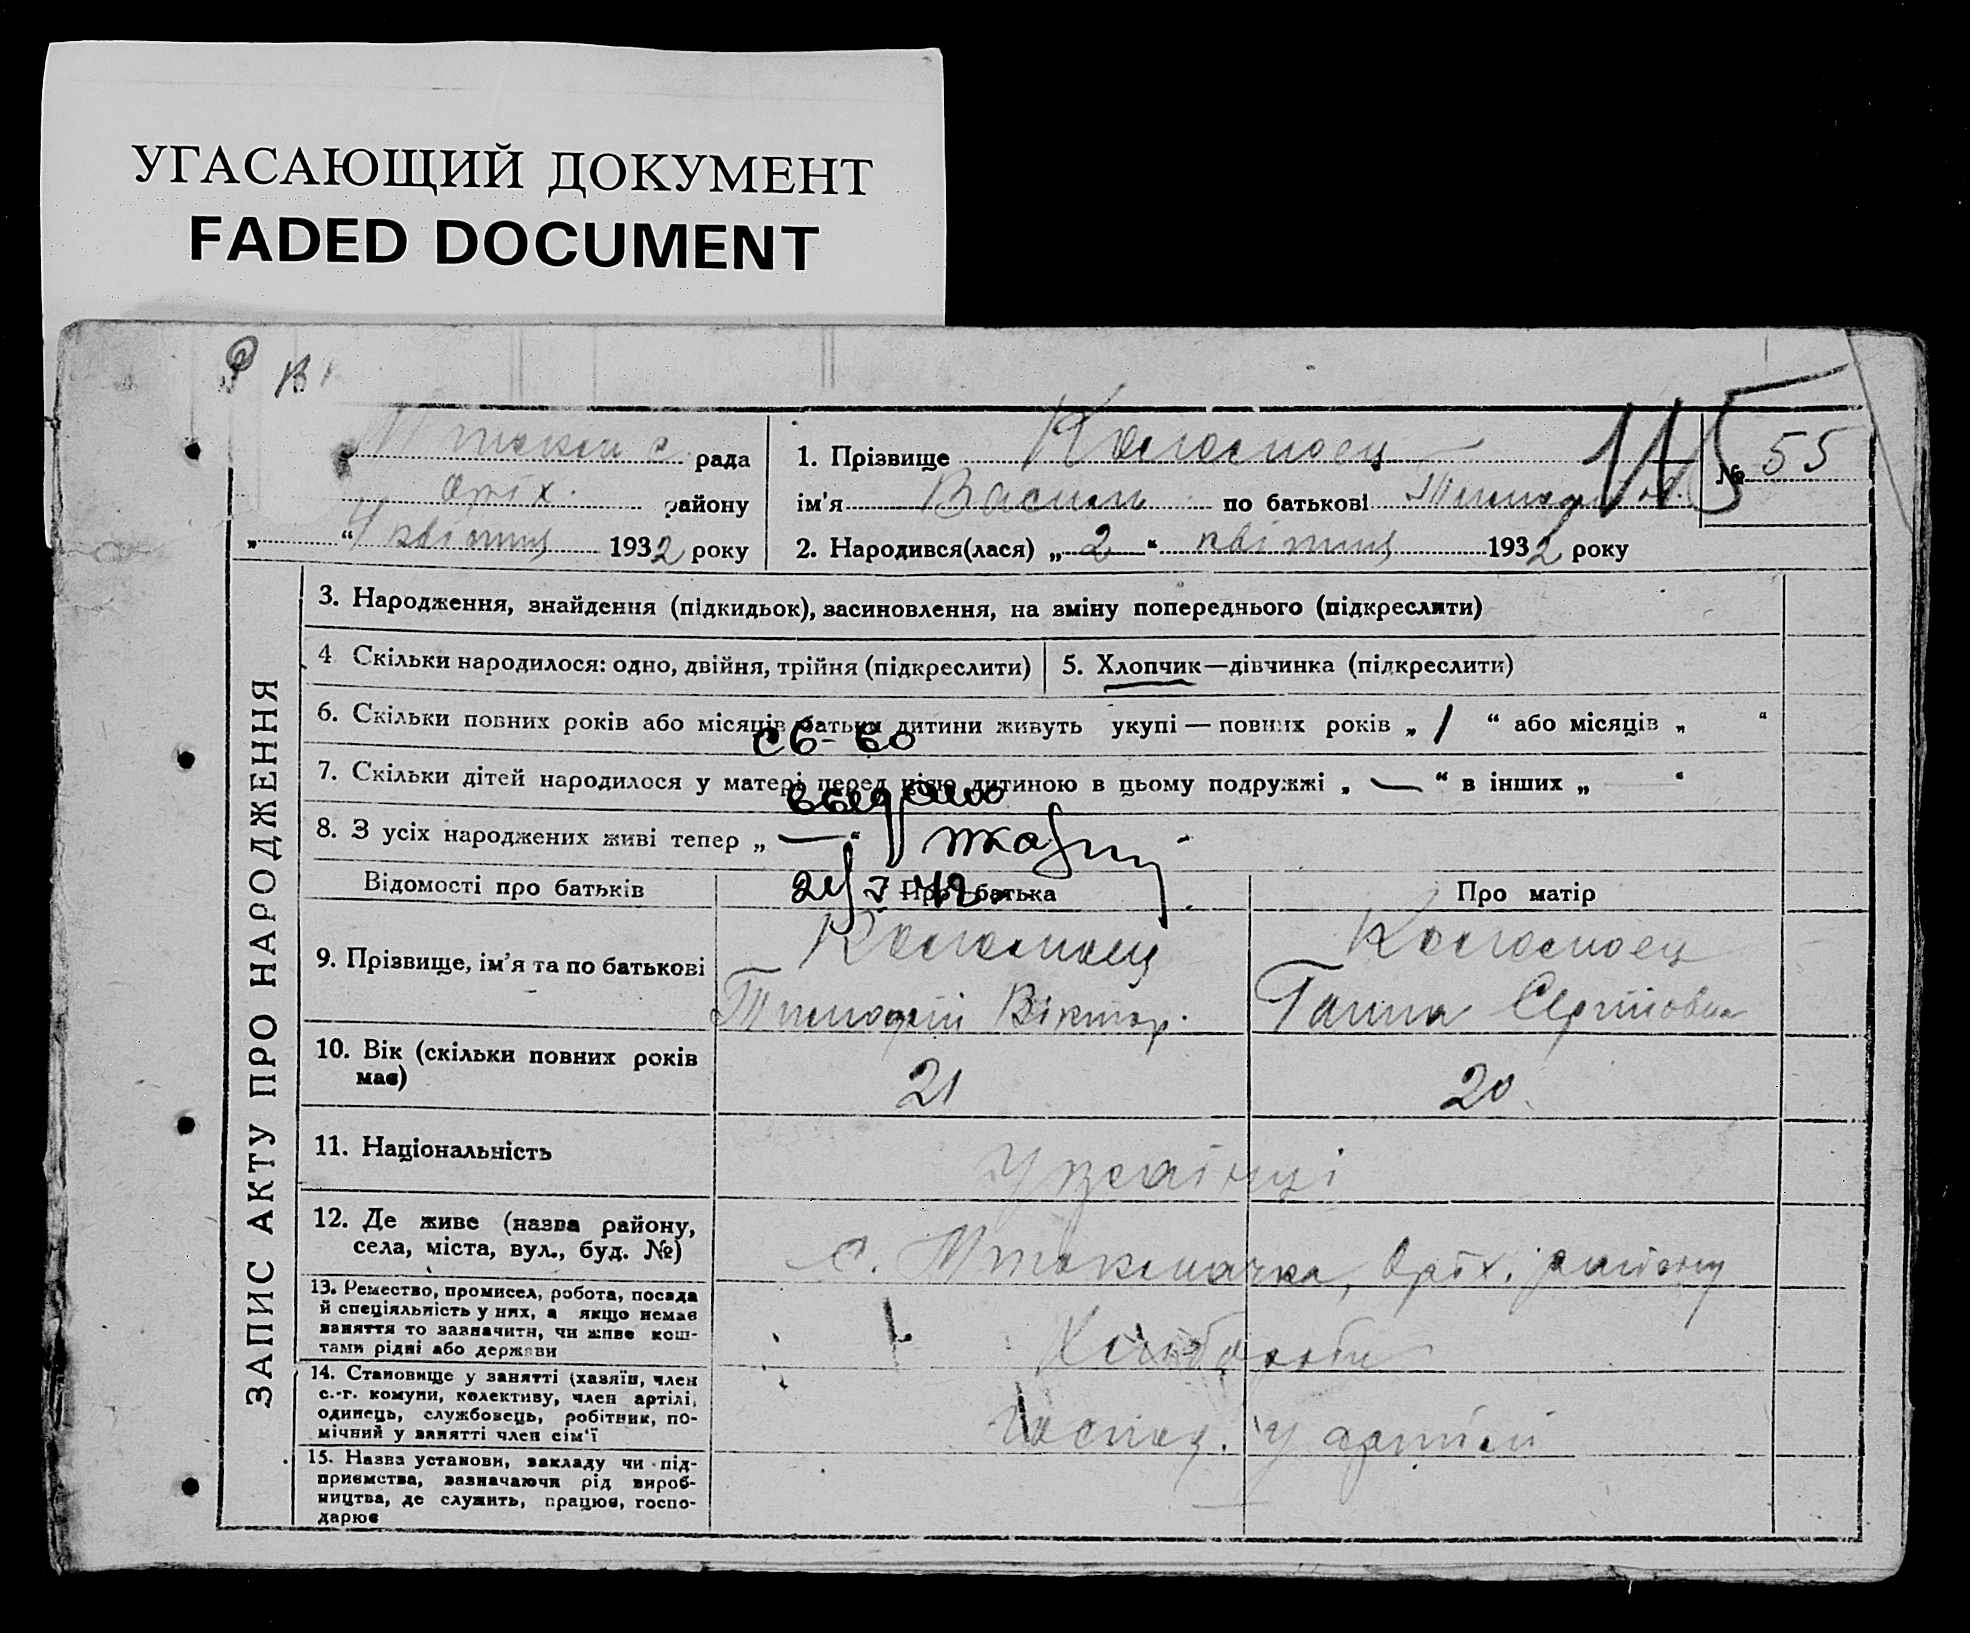 УГАСАЮЩИЙ ДОКУМЕНТ
FADED DOCUMENT
рада
Оріх. району
„ “ 4 квітня 1932 року
1. Прізвище
№ 55
145
ім'я Василь по батькові
2. Народився(лася) „ 2 “ квітня 1932 року
ЗАПИС АКТУ ПРО НАРОДЖЕННЯ
3. Народження, знайдення (підкидьок), засиновлення, на зміну попереднього (підкреслити)
4 Скільки народилося: одно, двійня, трійня (підкреслити)
5. Хлопчик—дівчинка (підкреслити)
6. Скільки повних років або місяців батьки дитини живуть укупі — повних років „ 1 “ або місяців „ “
св-во
7. Скільки дітей народилося у матері перед цією дитиною в цьому подружжі „ — “ в інших „ “
выдано
8. З усіх народжених живі тепер „ — “
Відомості про батьків
Про батька
Про матір
9. Прізвище, ім'я та по батькові
Тимофій Віктор.
Ганна Сергіовна
10. Вік (скільки повних років
має)
21
20
11. Національність
Українці
12. Де живе (назва району,
села, міста, вул., буд. №)
с. Мтокмачка, Оріх. району
13. Ремество, промисел, робота, посада
й спеціяльність у них, а якщо немає
заняття то зазначити, чи живе кош-
тами рідні або держави
Хлібороби
14. Становище у занятті (хазяїн, член
с.-г. комуни, колективу, член артілі,
одинець, службовець, робітник, по-
мічний у занятті член сім'ї
господ. у артілі
15. Назва установи, закладу чи під-
приємства, зазначаючи рід вироб-
ництва, де служить, працює, госпо-
дарює